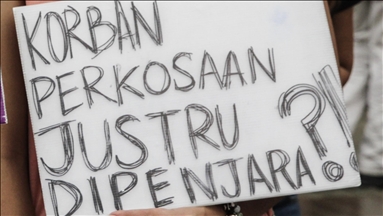 KORBAN
PERKOSAAN
JUSTRU
DIPENJARA?!